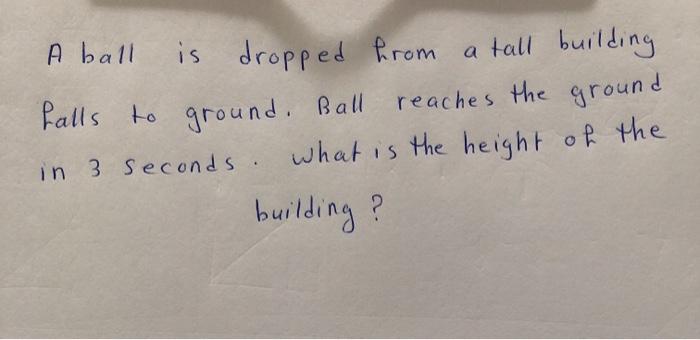 A ball is dropped from a tall building
falls to ground. Ball reaches the ground
in 3 seconds. What is the height of the
building?